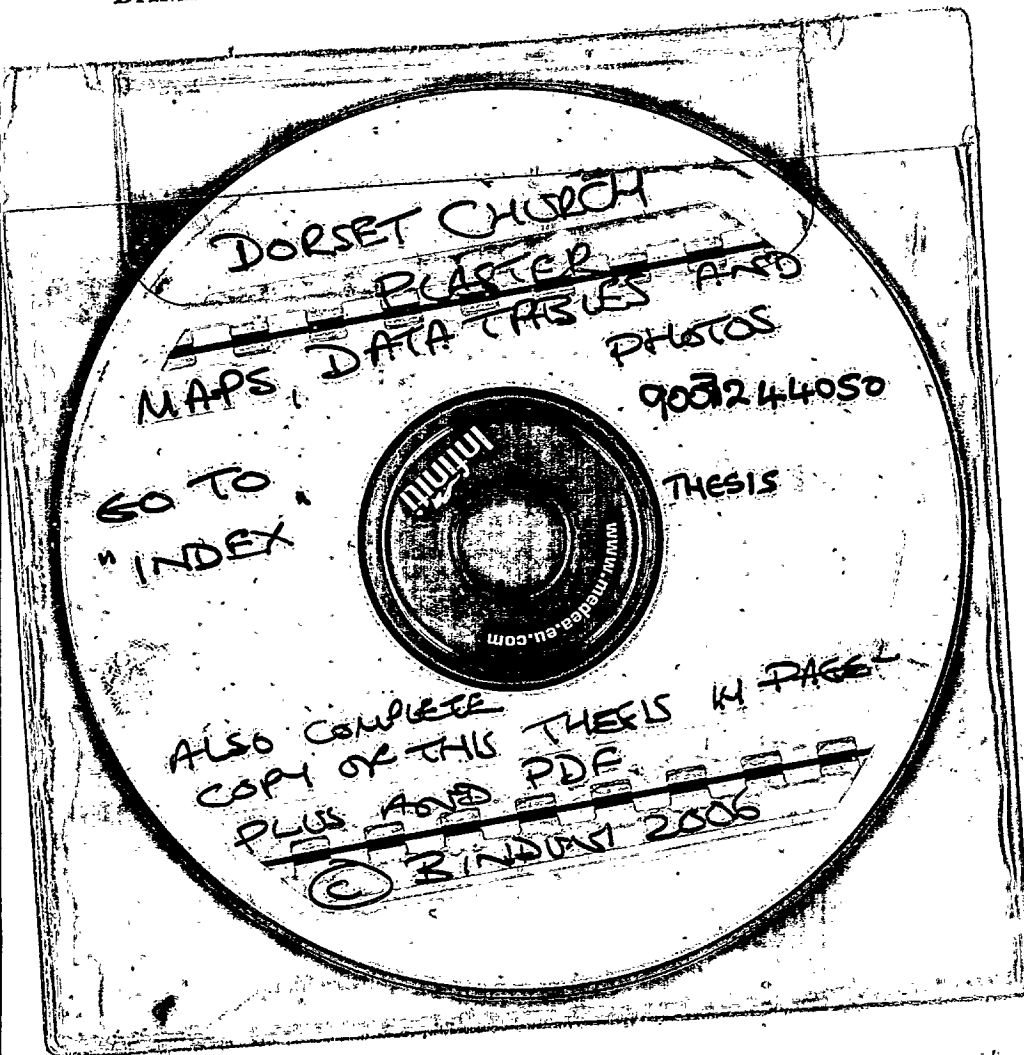 DORSET CHURCH
PLASTER
MAPS, DATA TABLES AND
PHOTOS
GO TO
"INDEX"
THESIS
Infiniti
www.medea.eu.com
ALSO COMPLETE
COPY OF THIS THESIS IN PAGE-
PLUS AND PDF
© BINDUM 2006